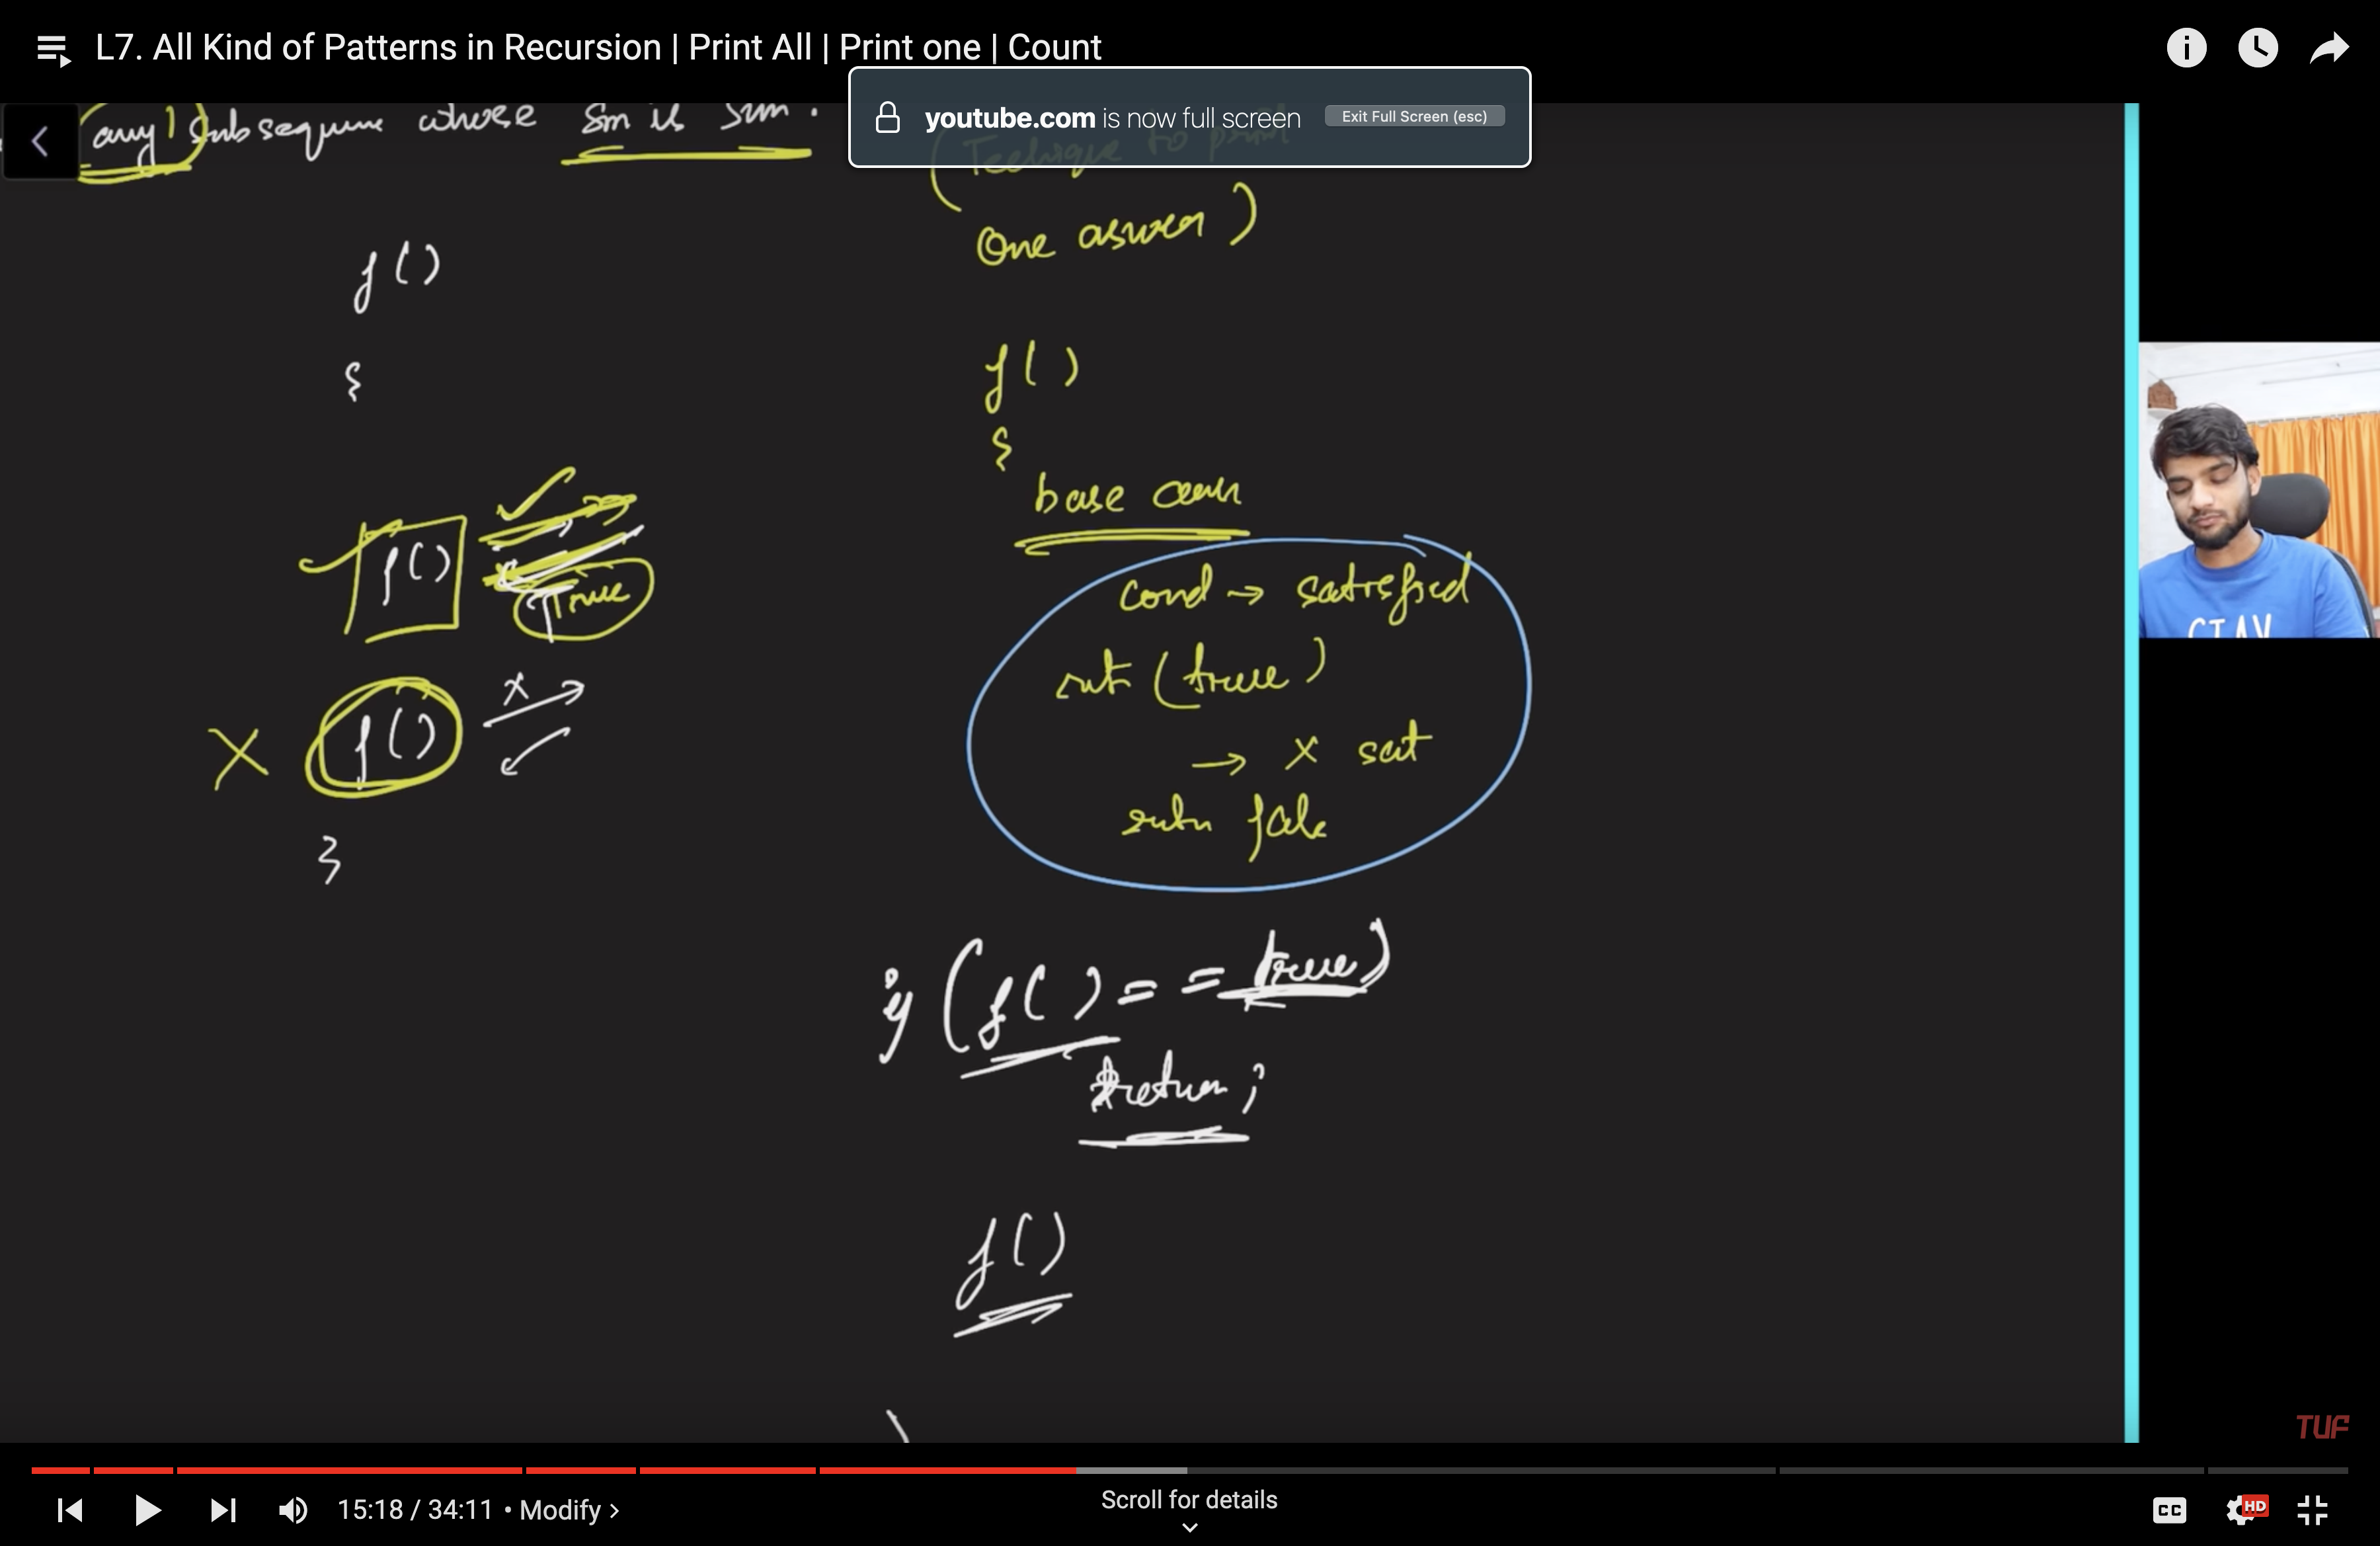 L7. All Kind of Patterns in Recursion | Print All | Print one | Count
youtube.com is now full screen
Exit Full Screen (esc)
any 1 subsequence whose sum is sum.
(Technique to print
One answer)
f()
{
f() True
f()
}
f()
{
base
cond → satisfied
return (true)
→ x sat
return false
if (f() == true)
return;
f()
TUF
15:18 / 34:11 • Modify >
Scroll for details
CC
HD